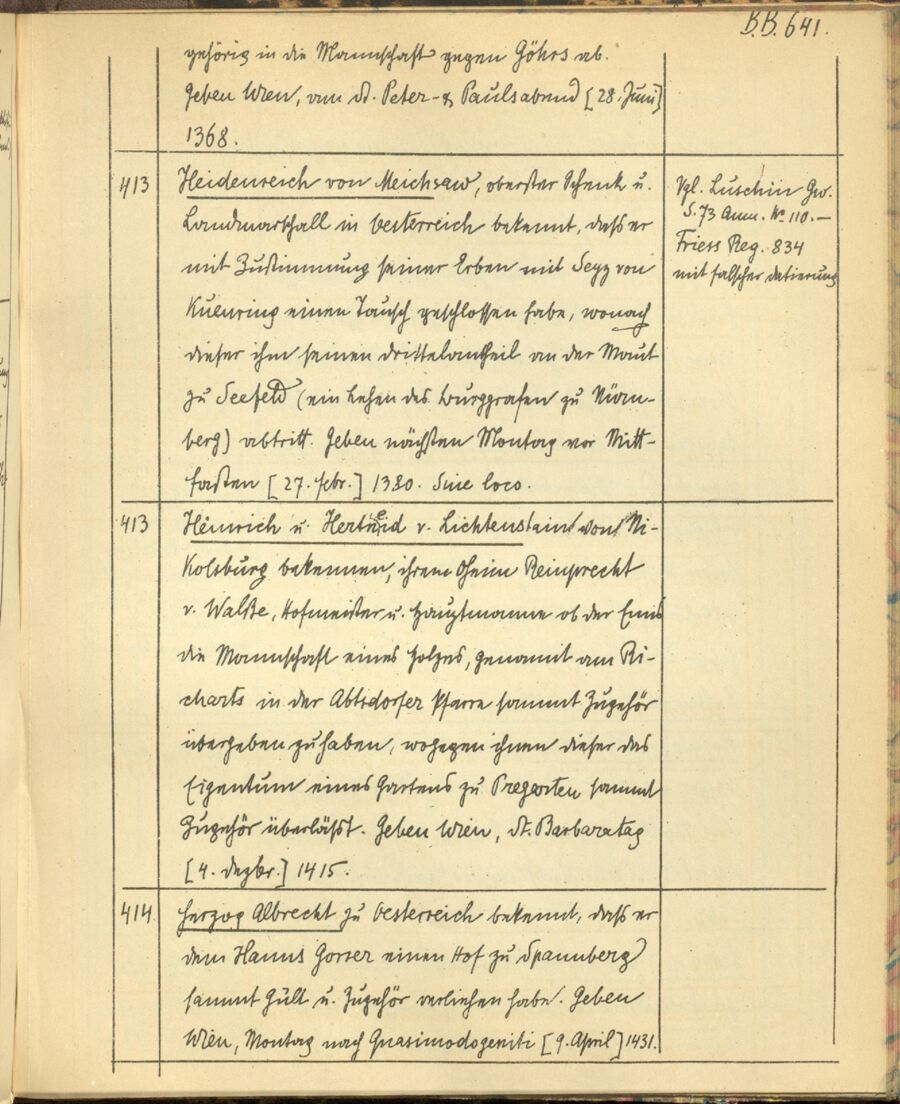 B.B. 641.
gehörig in die Mannschaft gegen Göhrs ab.
Geben Wien, am St. Peter- & Paulsabend [28. Juni]
1368.
413
Heidenreich von Meichsaw, oberster Schenk u.
Landmarschall in Oesterreich bekennt, daß er
mit Zustimmung seiner Erben mit Seyz von
Kuenring einen Tausch geschlossen habe, wonach
dieser ihm seinen Drittelantheil an der Maut
zu Seefeld (ein Lehen des Burggrafen zu Nürn-
berg) abtritt. Geben nächsten Montag vor Mitt-
fasten [27. Febr.] 1380. Sine loco.
Vgl. Luschin Gw.
S. 73 Anm. No 110.—
Friess Reg. 834
mit falscher Datierung
413
Heinrich u. Hertneid v. Lichtenstain von Ni-
kolsburg bekennen, ihrem Oheim Reinprecht
v. Walsee, Hofmeister u. Hauptmanne ob der Enns
die Mannschaft eines Holzes, genannt am Ri-
charts in der Abtsdorfer Pfarre sammt Zugehör
übergeben zu haben, wogegen ihnen dieser das
Eigentum eines Gartens zu Pregarten sammt
Zugehör überläßt. Geben Wien, St. Barbaratag
[4. Dezbr.] 1415.
414
Herzog Albrecht zu Oesterreich bekennt, daß er
dem Hanns Gorser einen Hof zu Spannberg
sammt Gült u. Zugehör verliehen habe. Geben
Wien, Montag nach Quasimodogeniti [9. April] 1431.